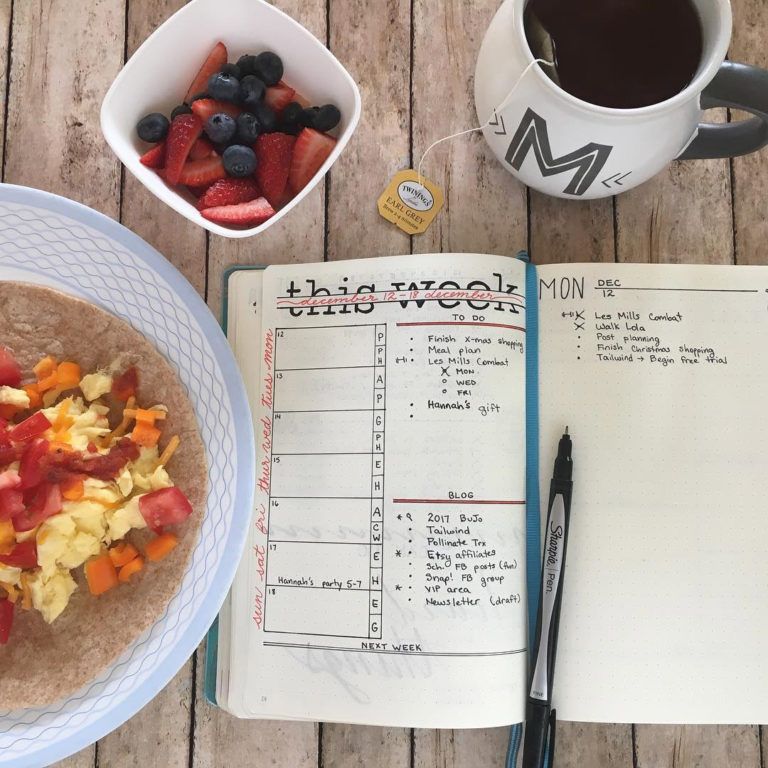 M
TWININGS
of London
EARL GREY
Brew 2-4 minutes
this week
december 12 - 18 december
mon
tues
wed
thur
fri
sat
sun
12
13
14
15
16
17
Hannah's party 5-7
18
P
PH
A
P
G
PH
E
H
A
CW
E
H
E
G
TO DO
Finish X-mas shopping
Meal plan
Les Mills Combat
MON
WED
FRI
Hannah's gift
BLOG
2017 BuJo
Tailwind
Pollinate Trx
Etsy affiliates
Sch. FB posts (fun)
Snap! FB group
VIP area
Newsletter (draft)
NEXT WEEK
MON DEC
12
Les Mills Combat
Walk Lola
Post planning
Finish Christmas shopping
Tailwind → Begin free trial
Sharpie Pen